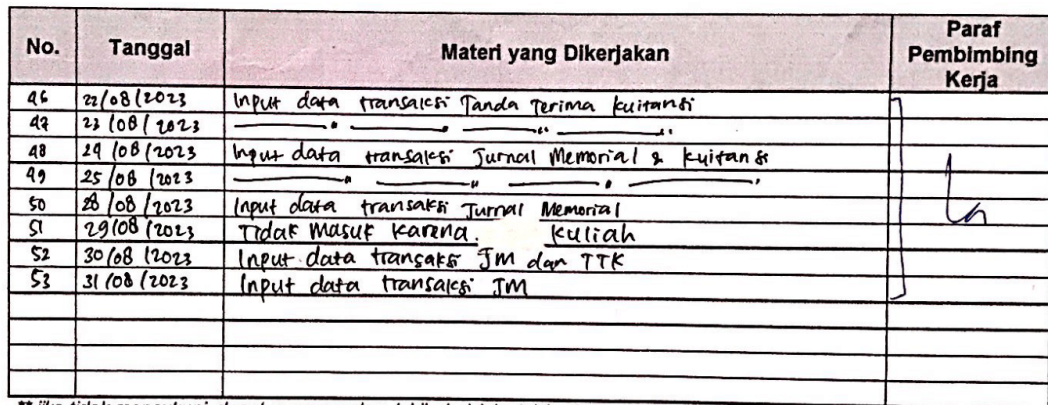 No. Tanggal Materi yang Dikerjakan Paraf Pembimbing Kerja
46 22/08/2023 Input data transaksi Tanda Terima kuitansi
47 23/08/2023 —" —" —" —"
48 24/08/2023 Input data transaksi Jurnal Memorial & kuitansi
49 25/08/2023 —" —" —" —"
50 28/08/2023 Input data transaksi Jurnal Memorial
51 29/08/2023 Tidak Masuk karena. kuliah
52 30/08/2023 Input data transaksi JM dan TTK
53 31/08/2023 Input data transaksi JM
** jika tidak